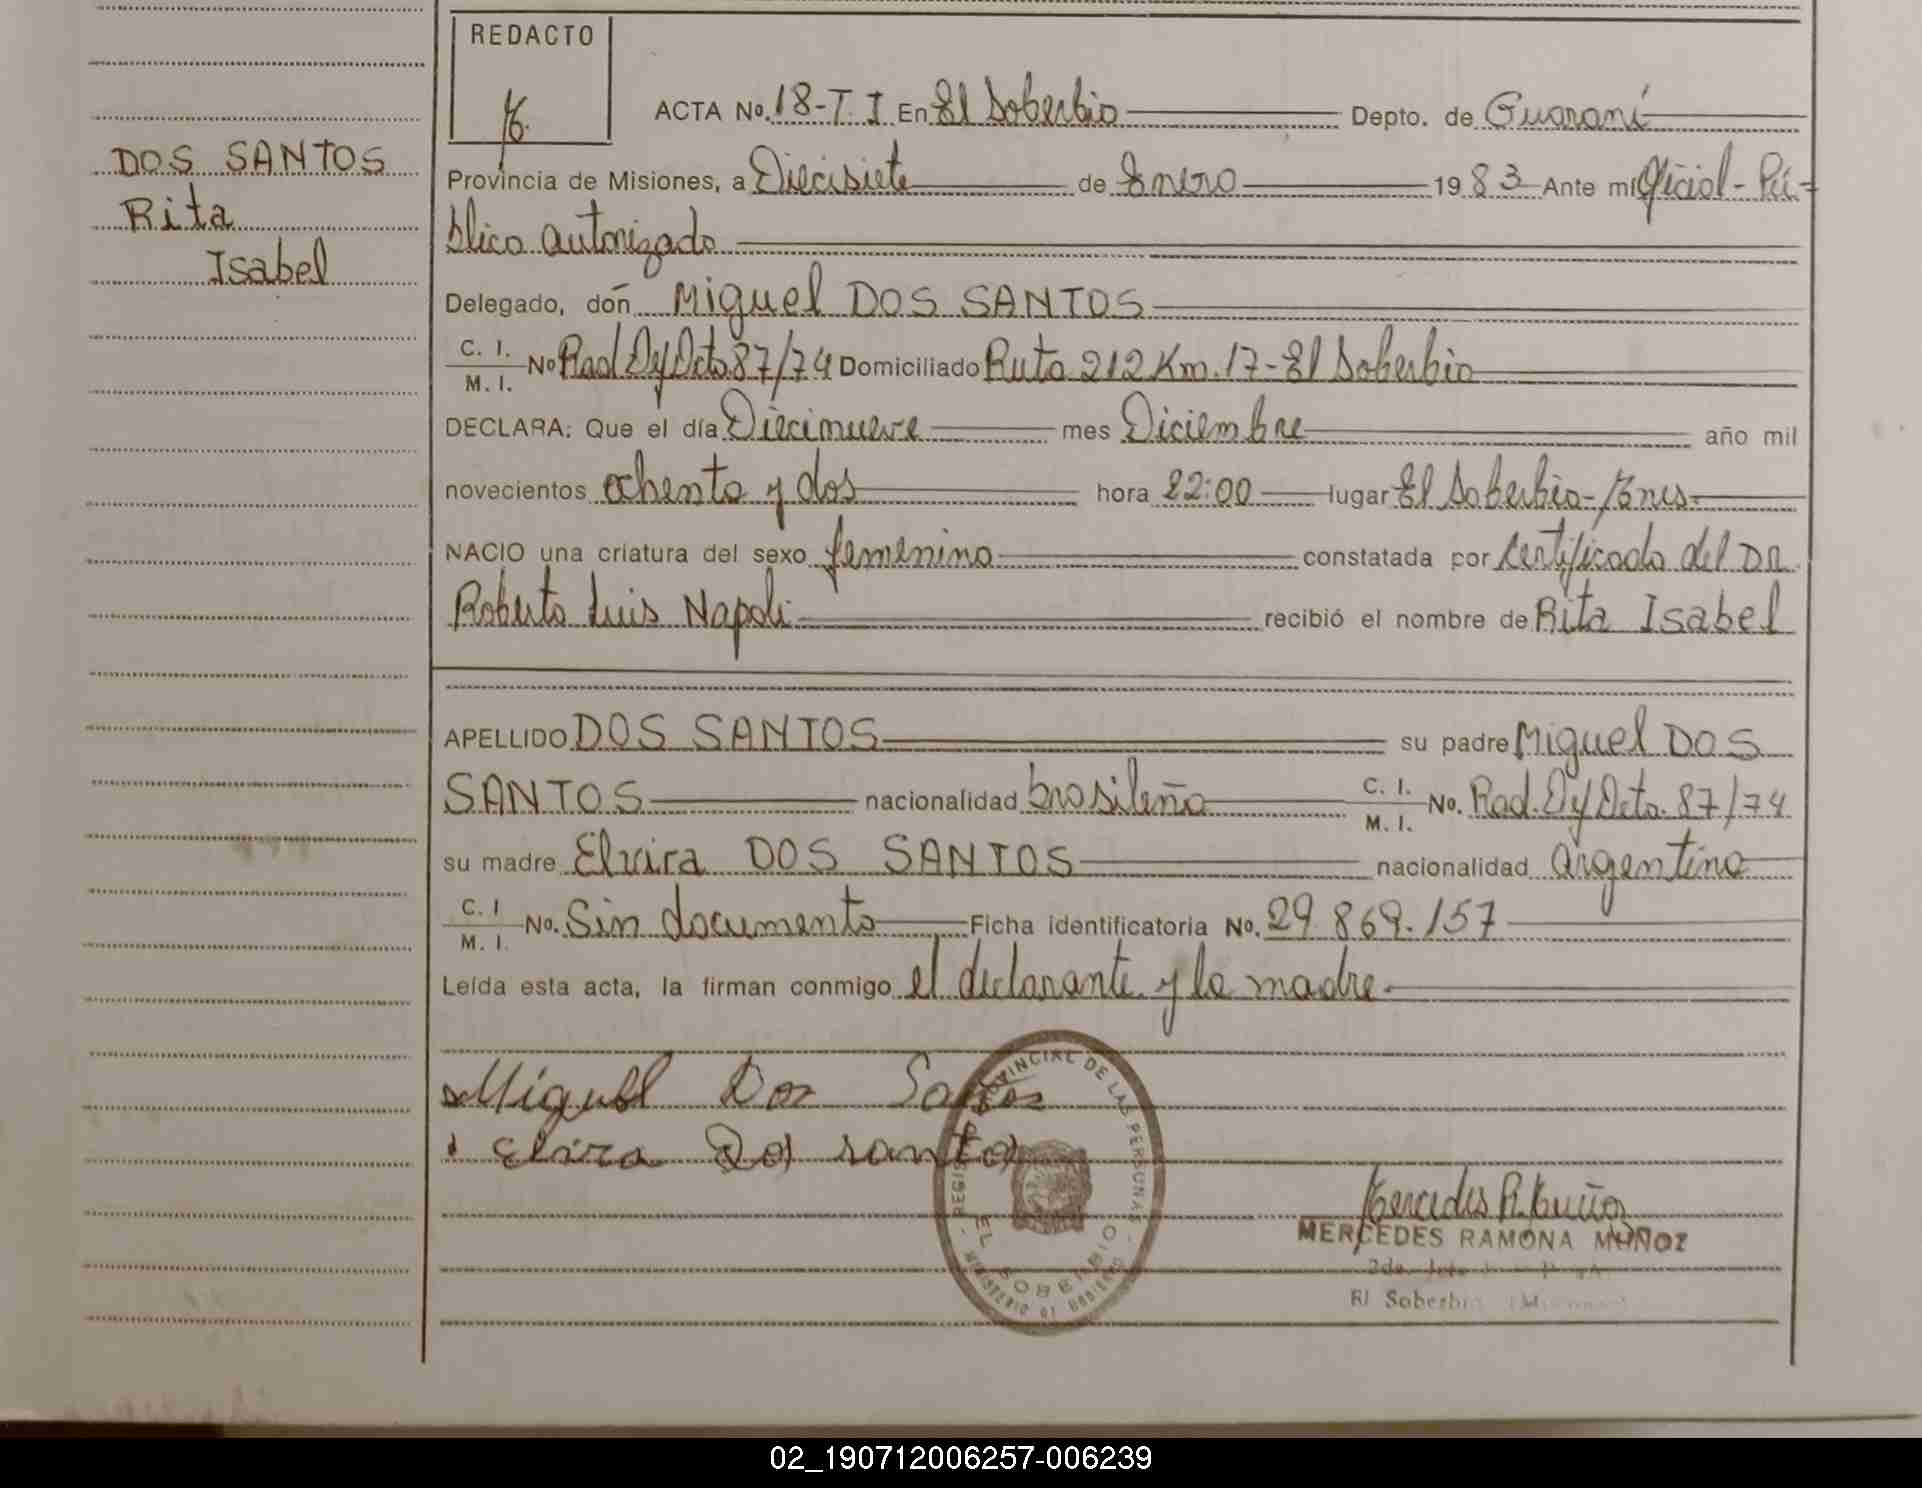 REDACTO
ACTA No. 18-T. I En El Soberbio Depto. de Guaraní
DOS SANTOS
Rita
Isabel
Provincia de Misiones, a Diecisiete de Enero 1983 Ante mi Oficial-Pú-
blico autorizado
Delegado, don Miguel DOS SANTOS
C. I.
M. I. No Rad. Dy Dcto 87/74 Domiciliado Ruta 212 Km. 17-El Soberbio
DECLARA: Que el día Diecinueve mes Diciembre año mil
novecientos ochenta y dos hora 22:00 lugar El Soberbio-
NACIO una criatura del sexo femenino constatada por Certificado del DR.
Roberto Luis Napoli recibió el nombre de Rita Isabel
APELLIDO DOS SANTOS su padre Miguel DOS
SANTOS nacionalidad brasileña C. I.
M. I. No. Rad. Dy Dcto. 87/74
su madre Elvira DOS SANTOS nacionalidad argentina
C. I
M. I. No. Sin documento Ficha identificatoria No. 29.869.157
Leída esta acta, la firman conmigo el declarante y la madre.
Miguel Dos Santos
Elvira Dos santos
REGISTRO PROVINCIAL DE LAS PERSONAS
EL SOBERBIO
MINISTERIO DE GOBIERNO
Mercedes R. Muñoz
MERCEDES RAMONA MUÑOZ
El Soberbio
02_190712006257-006239